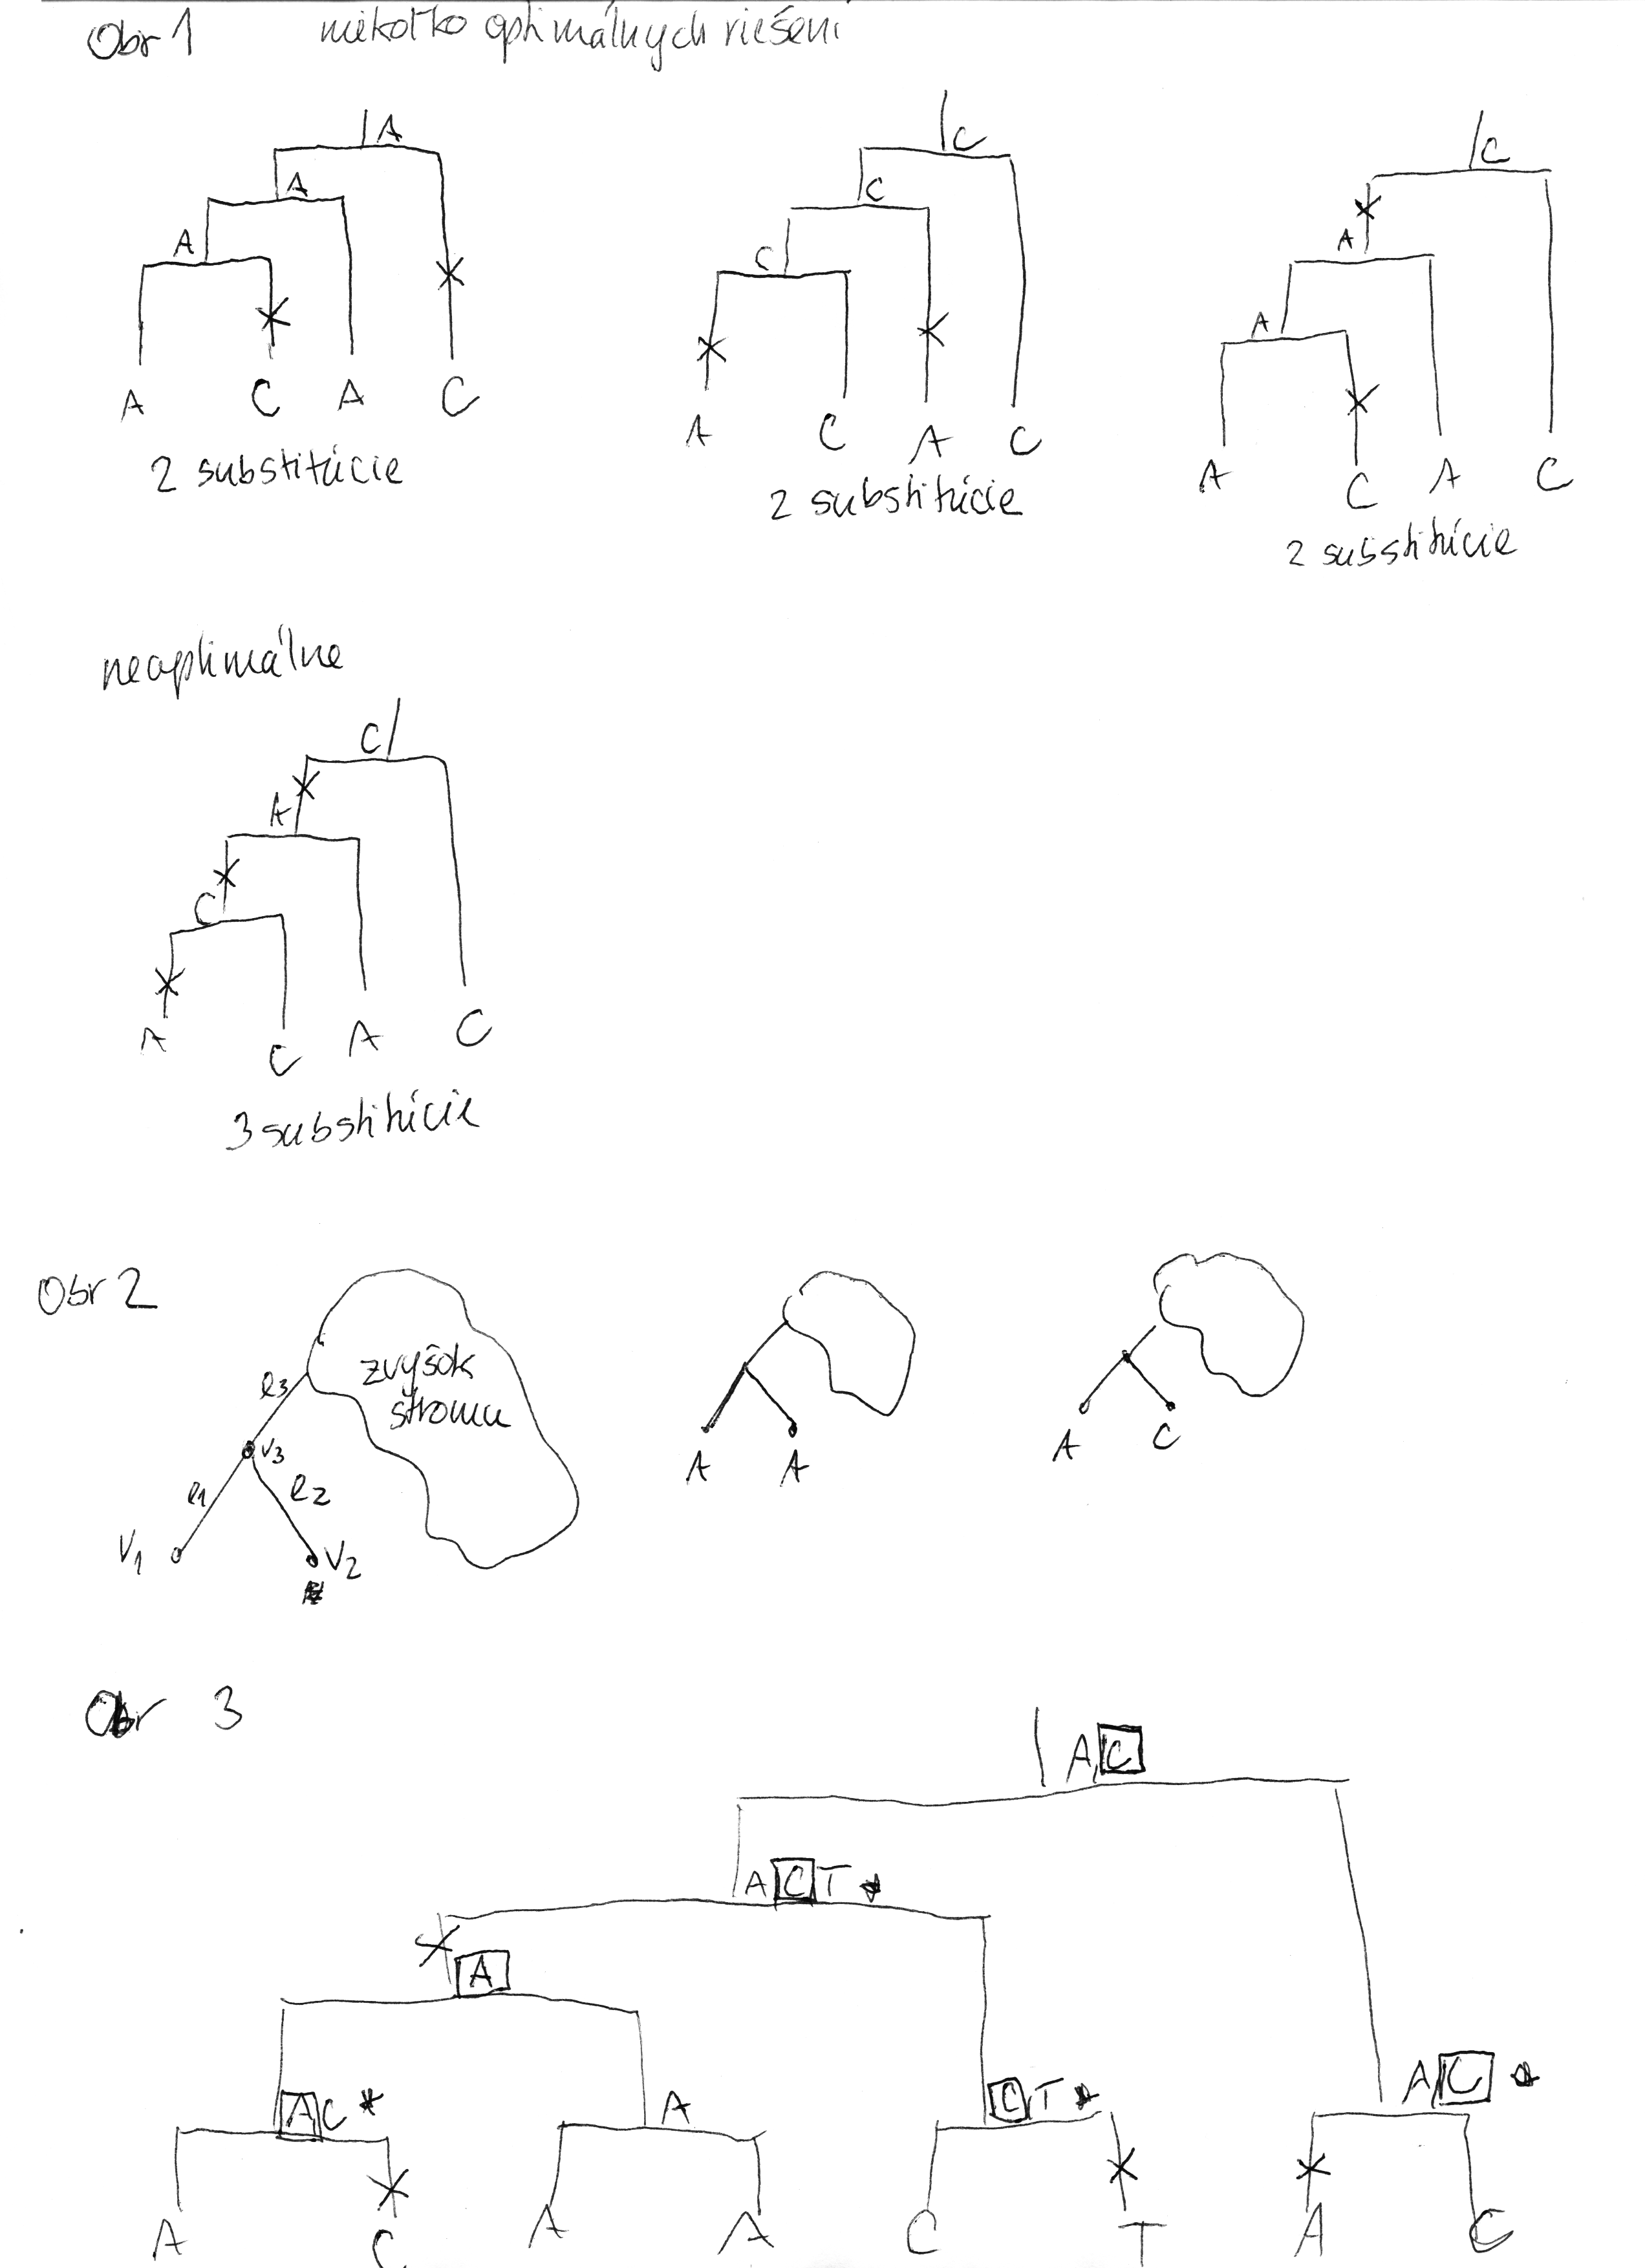 Obr 1 niekoľko optimálnych riešení
A
A
A
A C A C
2 substitúcie
C
C
C
A C A C
2 substitúcie
C
A
A
A C A C
2 substitúcie
neoptimálne
C
A
C
A C A C
3 substitúcie
Obr 2
zvyšok
stromu
e3
v3
e1 e2
V1 V2
A A
A C
Obr 3
A C
A C T *
A
A C *
A
C T *
A C *
A C A A C T A C